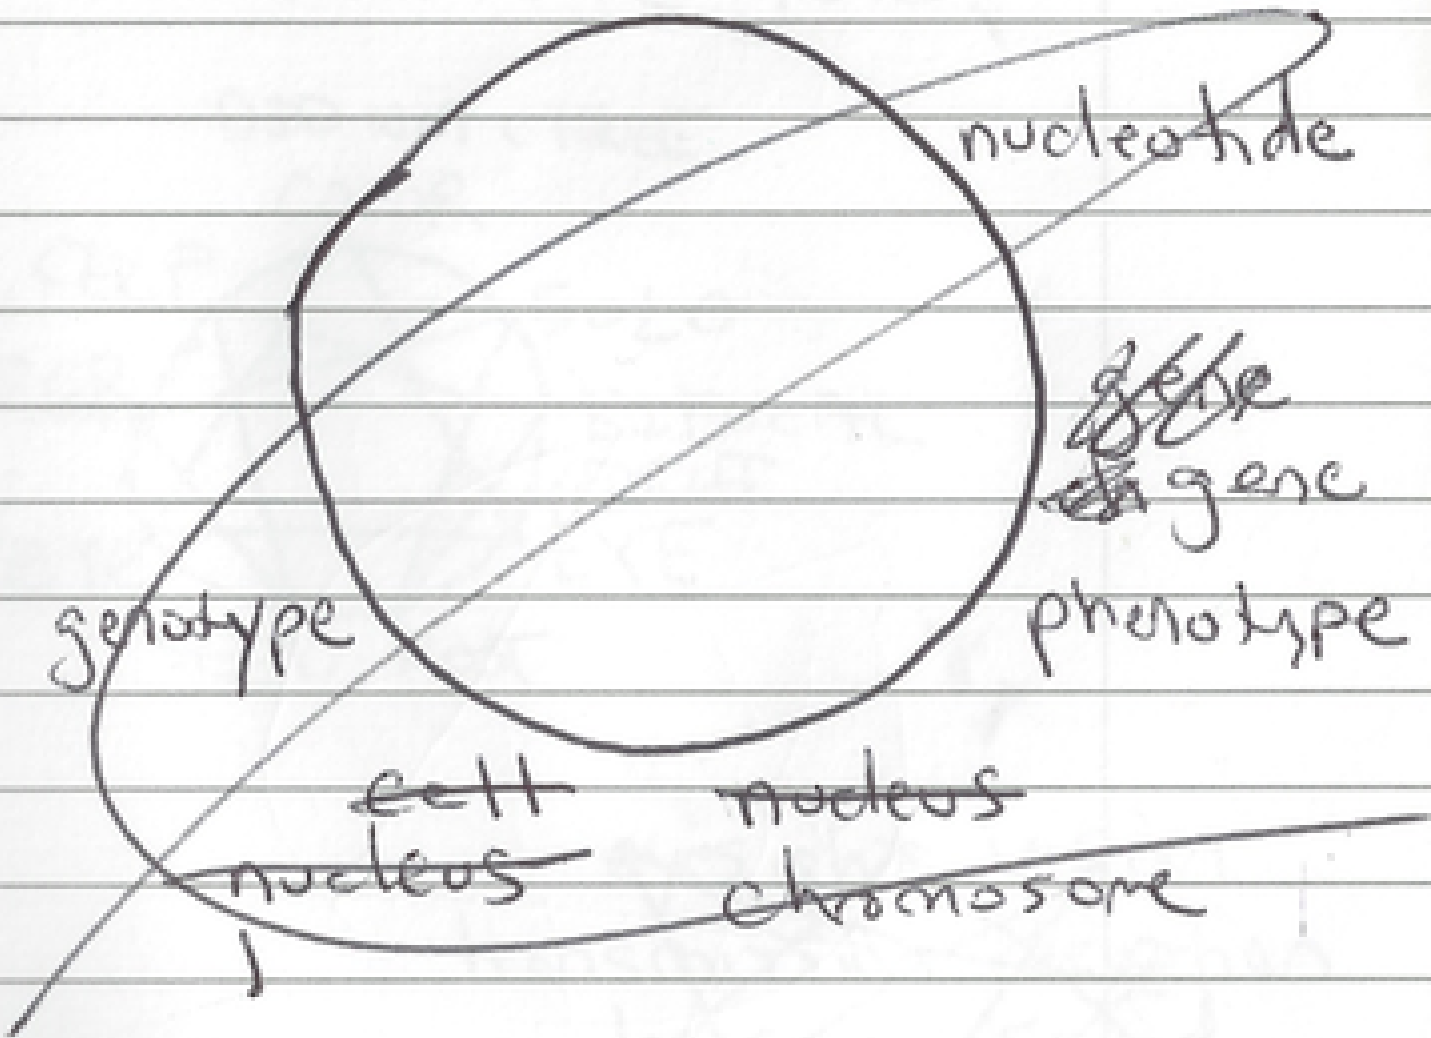 nucleotide
gene
gene
genotype phenotype
cell nucleus
nucleus chromosome